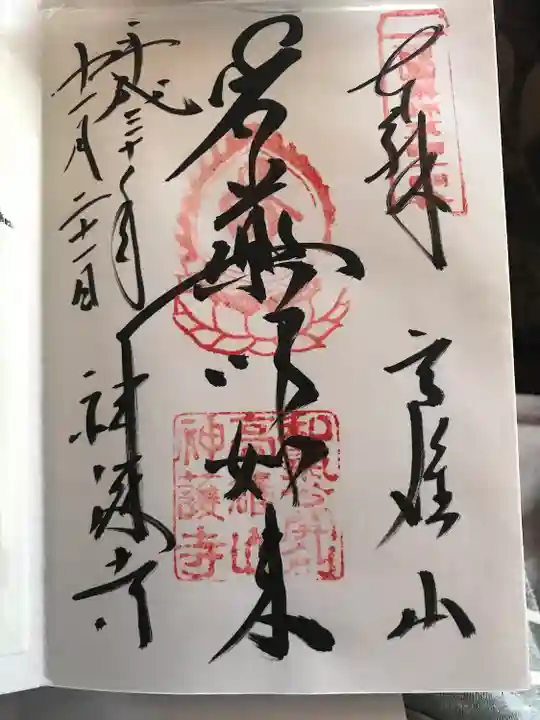 奉拝
高雄山
薬師如来
平成三十年
十一月二十一日
神護寺
高雄山
神護寺